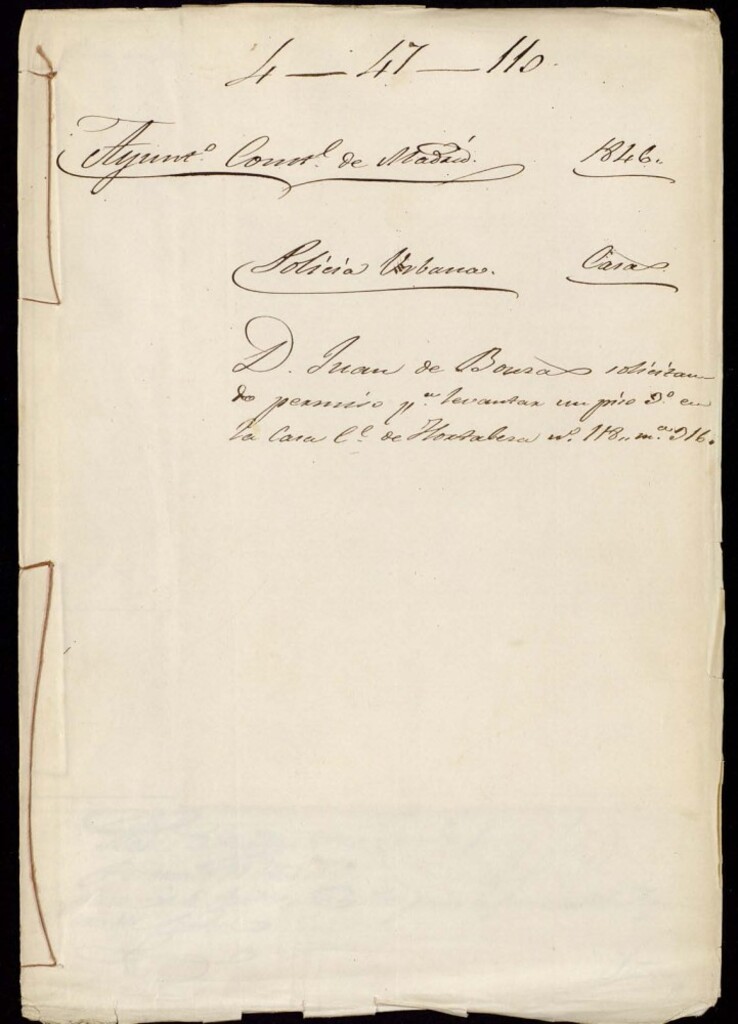 4 — 47 — 110.
Ayunt.º Const.l de Madrid. 1846.
Policia Urbana. Casas
D. Juan de Bouzas solicitan-
do permiso p.ª levantar un piso 3.º en
la Casa C.e de Hortaleza n.º 118,, m.ª 316.